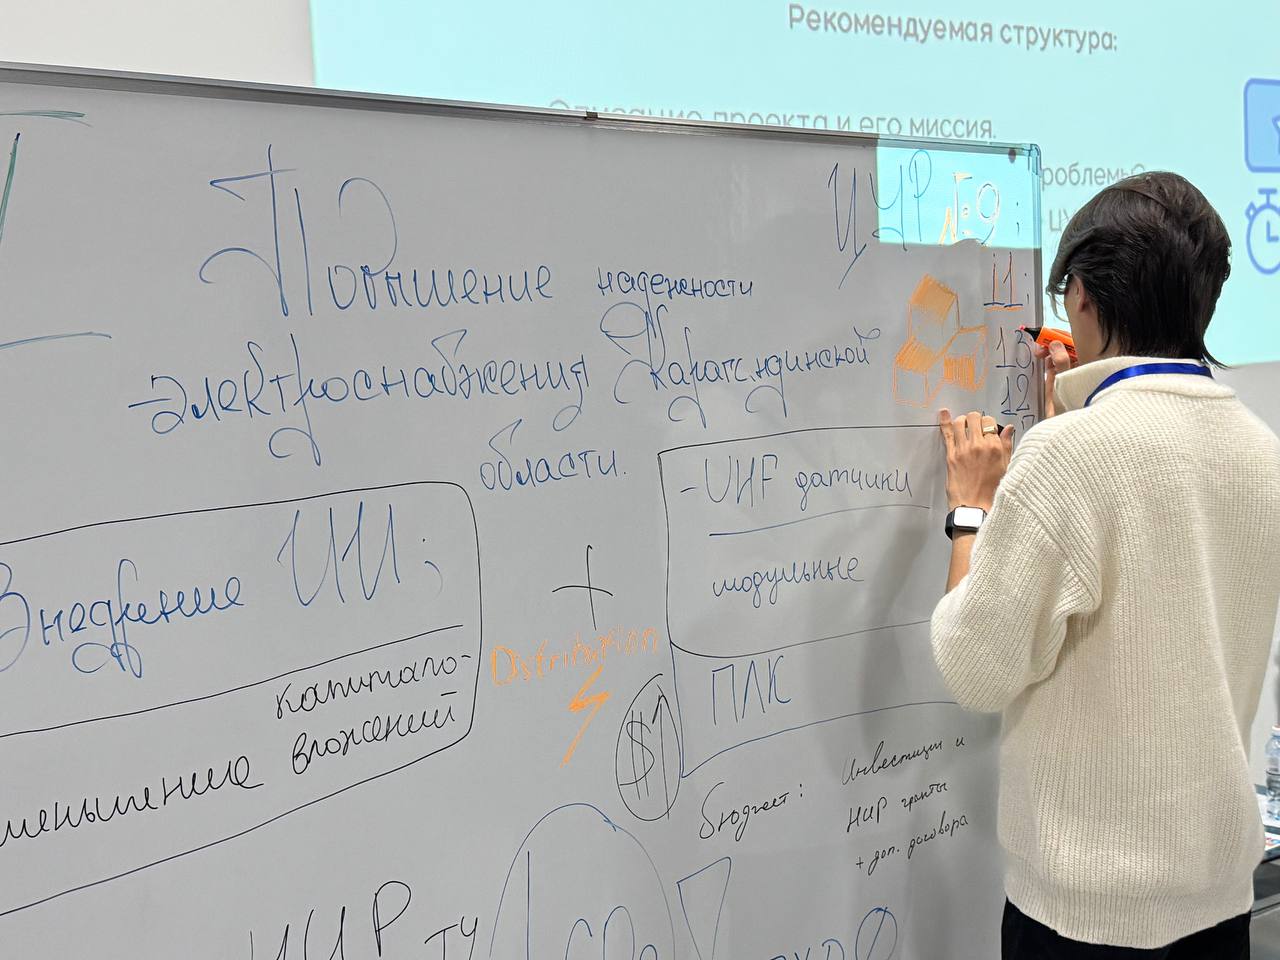 Рекомендуемая структура:
Описание проекта и его миссия.
ЦУР №9;
11;
13,
12
Повышение надежности
электроснабжения Карагандинской
области.
Внедрение ИИ;
капитало-
вложений
+
Distribution
$1
- UHF датчики
модульные
ПЛК
бюджет: Инвестиции и
НИР гранты
+ доп. договора
НИР